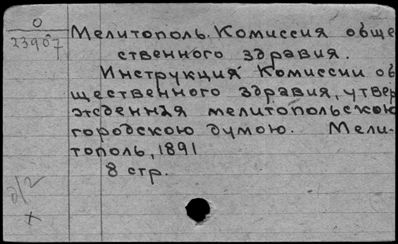 О
23907
Мелитополь. Комиссия обще
ственного здравия.
Инструкция Комиссии об
щественного здравия, утвер
жденная мелитопольскою
городскою думою. Мели-
тополь, 1891
8 стр.
д/2
+